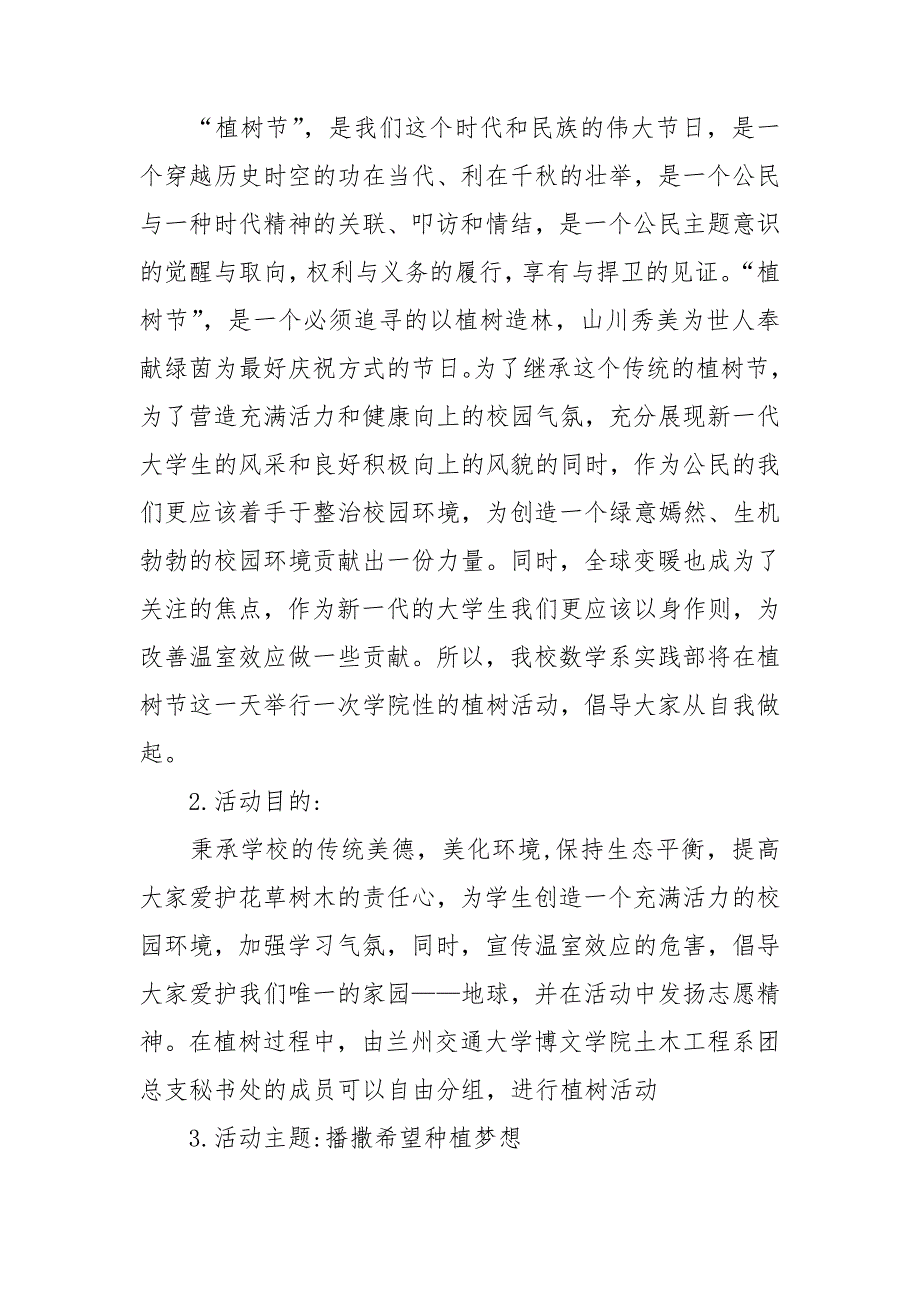 “植树节”，是我们这个时代和民族的伟大节日，是一
个穿越历史时空的功在当代、利在千秋的壮举，是一个公民
与一种时代精神的关联、叩访和情结，是一个公民主题意识
的觉醒与取向，权利与义务的履行，享有与捍卫的见证。“植
树节”，是一个必须追寻的以植树造林，山川秀美为世人奉
献绿茵为最好庆祝方式的节日。为了继承这个传统的植树节，
为了营造充满活力和健康向上的校园气氛，充分展现新一代
大学生的风采和良好积极向上的风貌的同时，作为公民的我
们更应该着手于整治校园环境，为创造一个绿意嫣然、生机
勃勃的校园环境贡献出一份力量。同时，全球变暖也成为了
关注的焦点，作为新一代的大学生我们更应该以身作则，为
改善温室效应做一些贡献。所以，我校数学系实践部将在植
树节这一天举行一次学院性的植树活动，倡导大家从自我做
起。
2.活动目的:
秉承学校的传统美德，美化环境,保持生态平衡，提高
大家爱护花草树木的责任心，为学生创造一个充满活力的校
园环境，加强学习气氛，同时，宣传温室效应的危害，倡导
大家爱护我们唯一的家园——地球，并在活动中发扬志愿精
神。在植树过程中，由兰州交通大学博文学院土木工程系团
总支秘书处的成员可以自由分组，进行植树活动
3.活动主题:播撒希望种植梦想